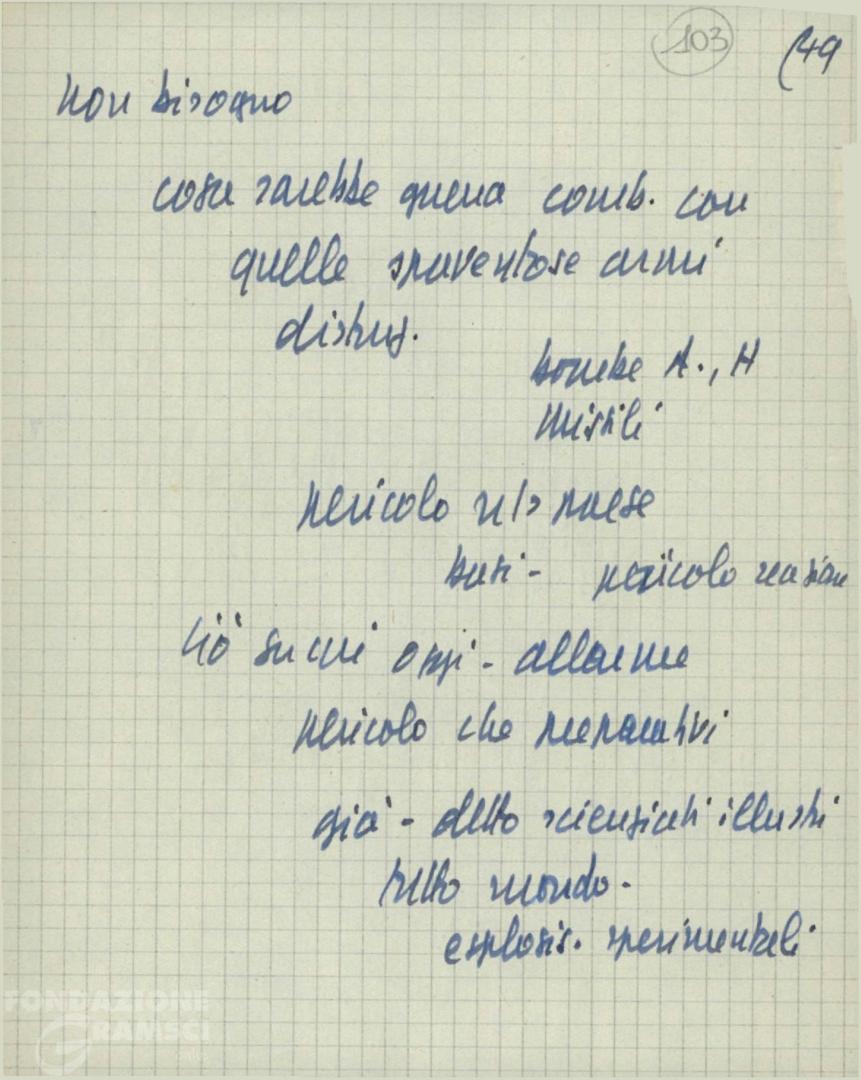 103
(49
non bisogno
cosa sarebbe guerra comb. con
quelle spaventose armi
distrug.
bombe A., H
Missili
pericolo paese
basi - pericolo
ciò su cui oggi - allarme
pericolo che preparativi
già - detto scienziati illustri
tutto mondo -
esplosi. sperimentali
FONDAZIONE
GRAMSCI